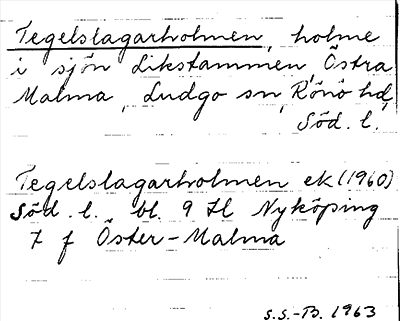 Tegelslagarholmen, holme
i sjön Likstammen, Östra
Malma, Ludgo sn, Rönö hd,
Söd. l.
Tegelslagarholmen ek (1960)
Söd. l. bl. 9 H Nyköping
7 f Öster-Malma
S.S.-B. 1963